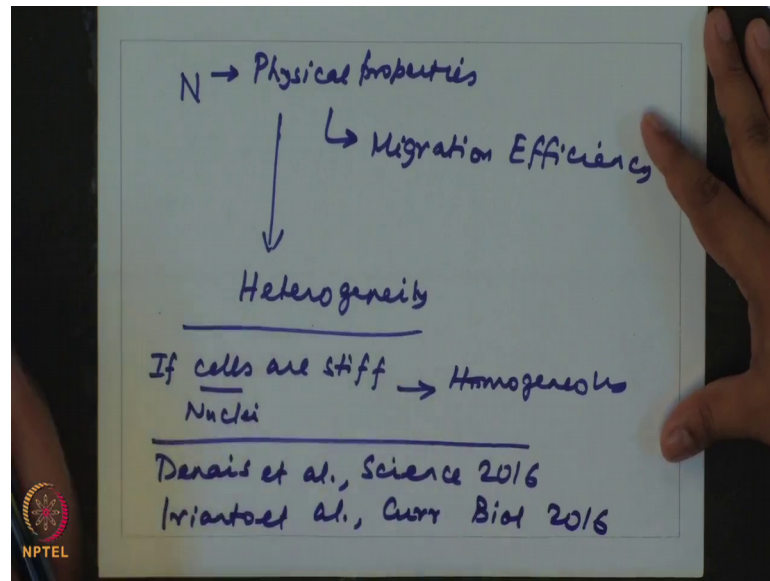 N → Physical properties
↳ Migration Efficiency
Heterogeneity
If cells are stiff → Homogeneous
Nuclei
Denais et al., Science 2016
Irianto et al., Curr Biol 2016
NPTEL